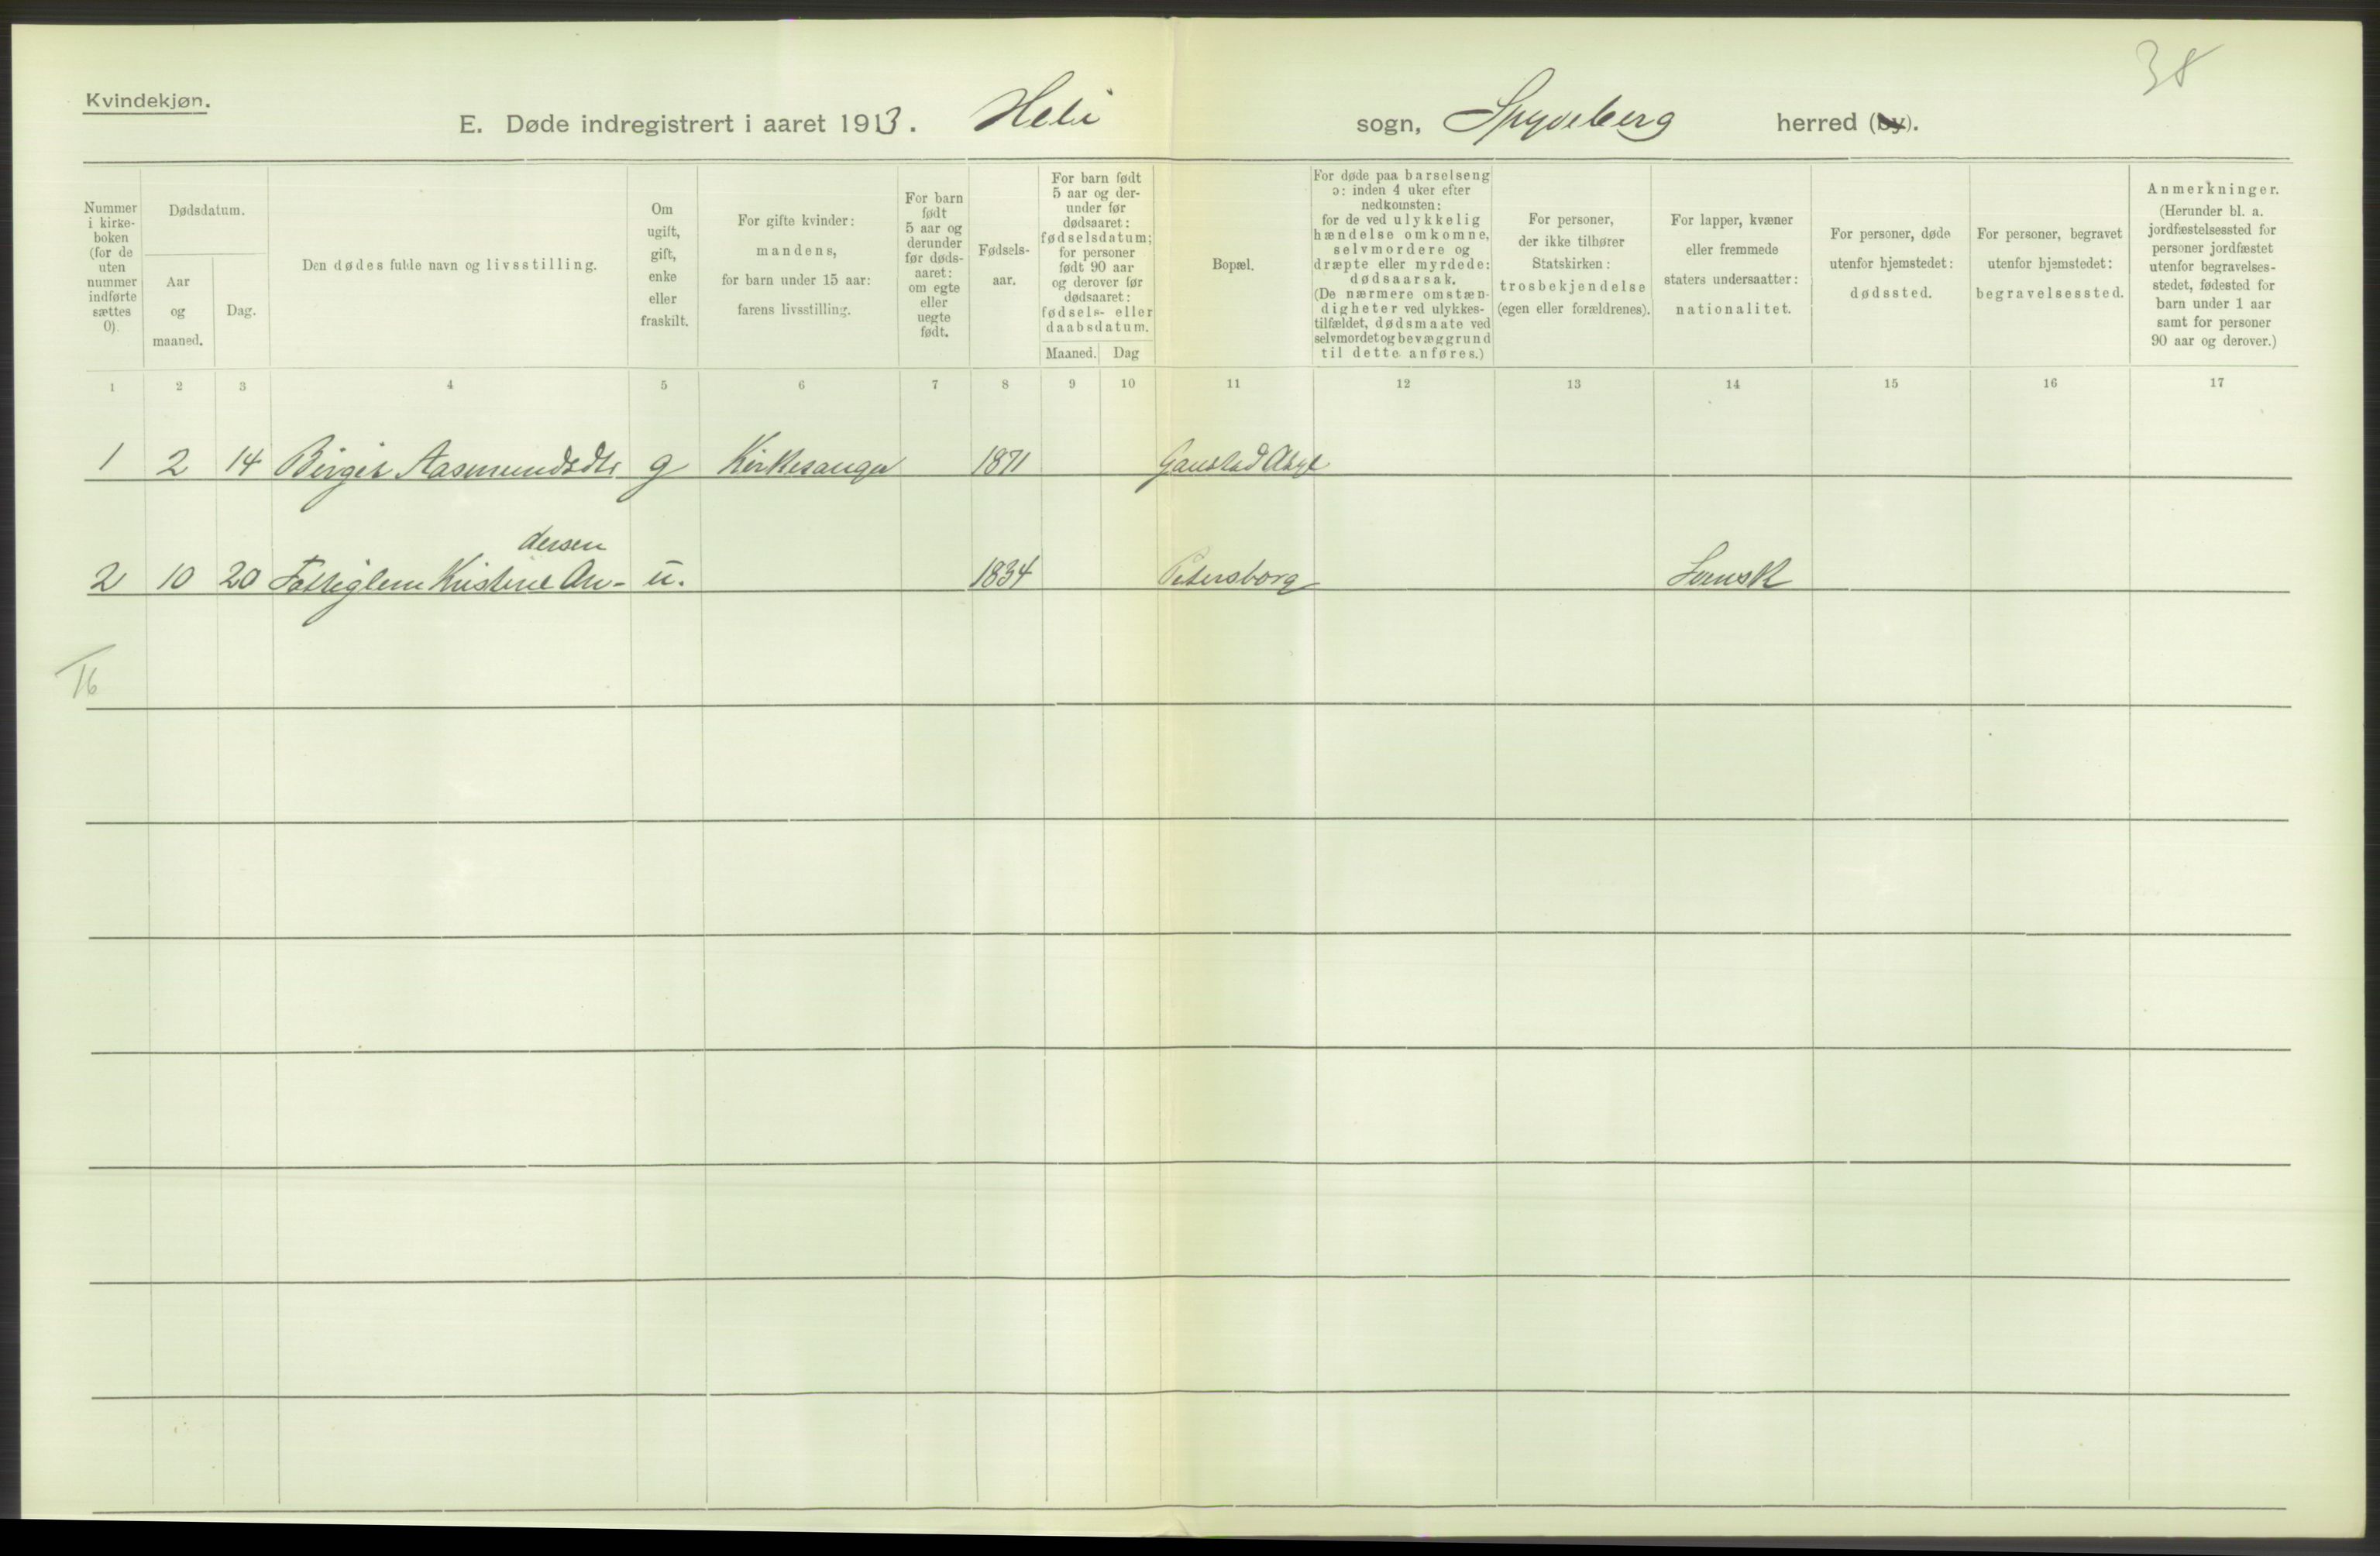 38
Kvindekjøn.
E. Døde indregistrert i aaret 1913. Heli sogn, Spydeberg herred (by).
Nummer
i kirke-
boken
(for de
uten
nummer
indførte
sættes
0).
Dødsdatum.
Aar
og
maaned.
Dag.
Den dødes fulde navn og livsstilling.
Om
ugift,
gift,
enke
eller
fraskilt.
For gifte kvinder:
mandens,
for barn under 15 aar:
farens livsstilling.
For barn
født
5 aar og
derunder
før døds-
aaret:
om egte
eller
uegte
født.
Fødsels-
aar.
For barn født
5 aar og der-
under før
dødsaaret:
fødselsdatum;
for personer
født 90 aar
og derover før
dødsaaret:
fødsels- eller
daabsdatum.
Maaned. Dag
Bopæl.
For døde paa barselseng
ɔ: inden 4 uker efter
nedkomsten:
for de ved ulykkelig
hændelse omkomne,
selvmordere og
dræpte eller myrdede:
dødsaarsak.
(De nærmere omstæn-
digheter ved ulykkes-
tilfældet, dødsmaate ved
selvmordet og bevæggrund
til dette anføres.)
For personer,
der ikke tilhører
Statskirken:
trosbekjendelse
(egen eller forældrenes).
For lapper, kvæner
eller fremmede
staters undersaatter:
nationalitet.
For personer, døde
utenfor hjemstedet:
dødssted.
For personer, begravet
utenfor hjemstedet:
begravelsessted.
Anmerkninger.
(Herunder bl. a.
jordfæstelsessted for
personer jordfæstet
utenfor begravelses-
stedet, fødested for
barn under 1 aar
samt for personer
90 aar og derover.)
1 2 3 4 5 6 7 8 9 10 11 12 13 14 15 16 17
1 2 14 Birgit Aasmundsdtr g Kirkesanger 1871 Gaustad Asyl
dersen
2 10 20 Fattiglem Kristine An- u. 1834 Petersborg Svensk
16